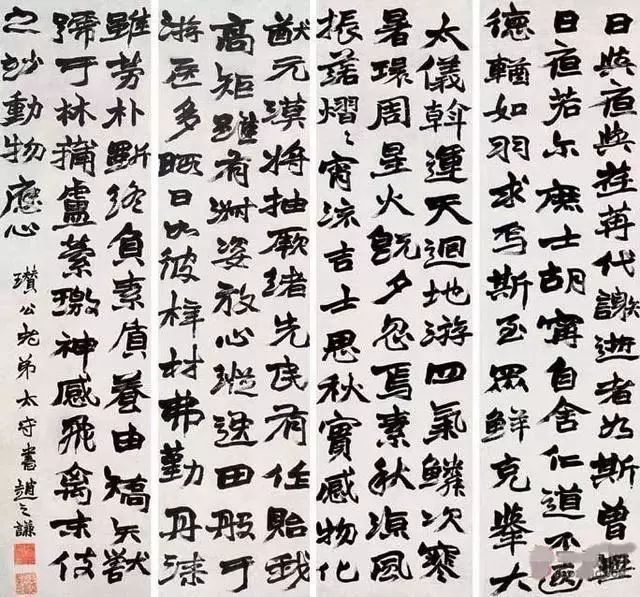 日與夜與荏苒代謝逝者如斯曾無
日夜若尔庶士胡寧自舍仁道不遐
德輶如羽求焉斯至眾鮮克舉大
太儀斡運天迴地游四氣鱗次寒
暑環周星火既夕忽焉素秋涼風
振落熠〻宵流吉士思秋實感物化
猷元漠將抽厥緒先民有作貽我
高矩雖有淑姿放心縱逸田般于
游居多暇日如彼梓材弗勤丹漆
雖勞朴斲終負素質養由矯矢獸
號于林蒲盧縈繳神感飛禽末伎
之妙動物應心
瓚公老弟太守書趙之謙